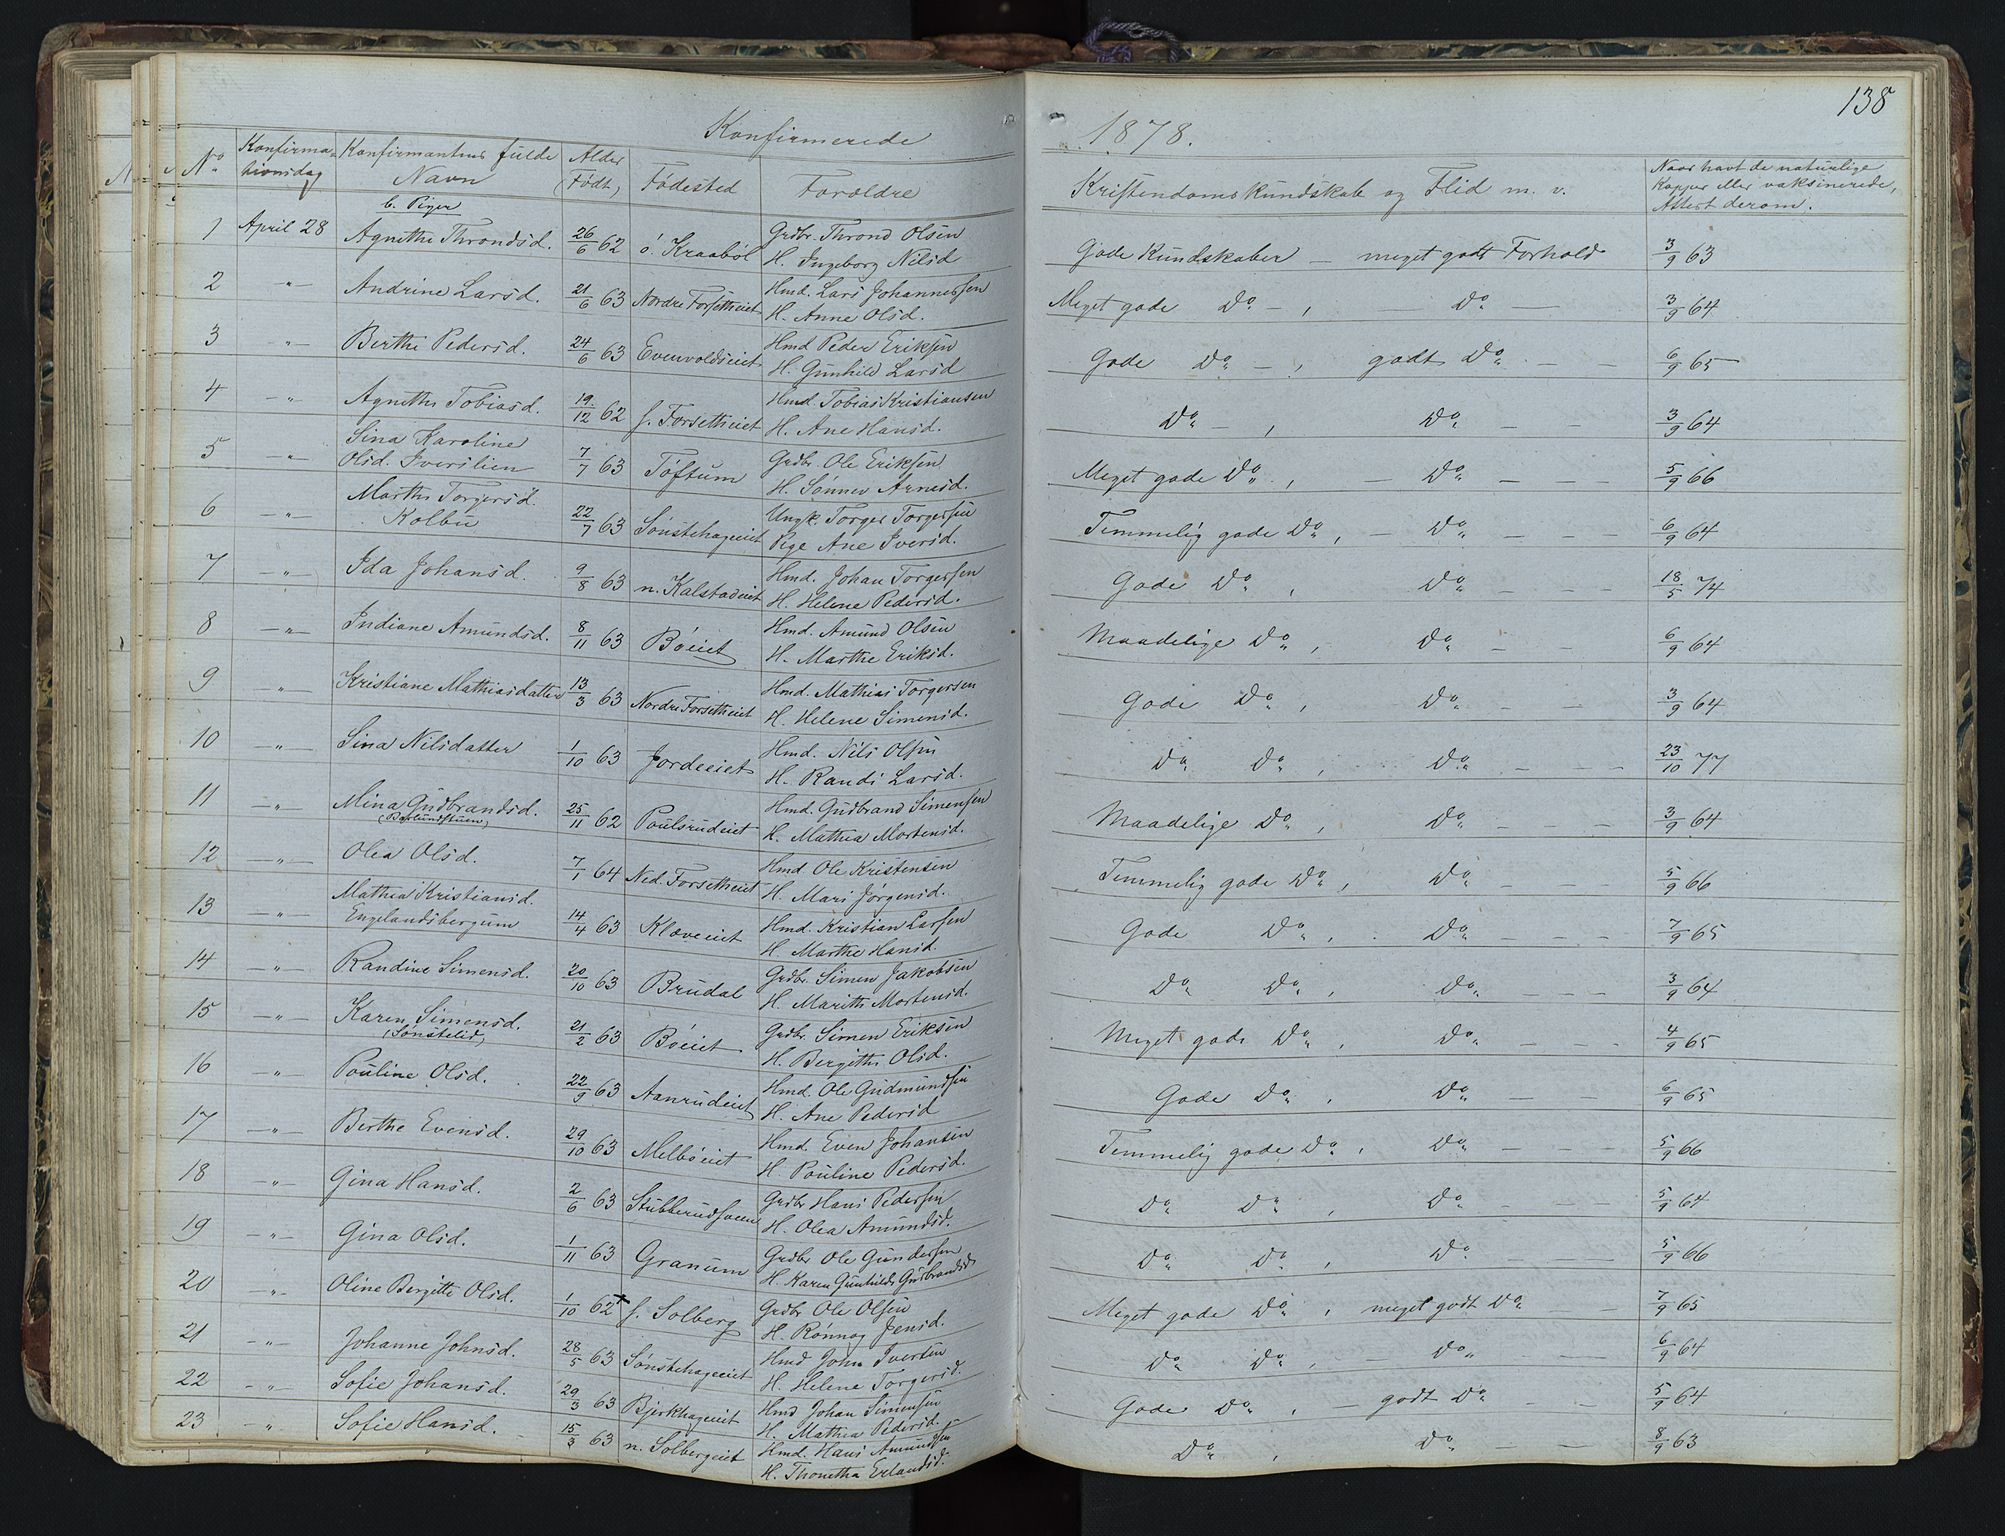 138
Konfirmerede 1878.
No Konfirmationsdag Konfirmantens fulde Navn Alder (Født) Fødested Forældre Kristendomskundskab og Flid m. v. Naar havt de naturlige Kopper eller vaksinerede, Attest derom.
b. Piger
1 April 28 Agnethe Throndsd. 26/6 62 ö. Kraabøl Grdbr. Thrond Olsen
H. Ingeborg Nilsd Gode Kundskaber — meget godt Forhold 3/9 63
2 —"— Andrine Larsd. 21/6 63 Nordre Forsetheiet Hmd. Lars Johannessen
H. Anne Olsd. Meget gode Do — , — Do — 3/9 64
3 —"— Berthe Pedersd. 24/6 63 Evenvoldseiet Hmd Peder Eriksen
H. Gunhild Larsd Gode Do — , godt Do — — 6/9 65
4 —"— Agnethe Tobiasd. 19/12 62 s. Forsetheiet Hmd. Tobias Kristiansen
H. Ane Hansd. Do — , Do — — 3/9 64
5 —"— Sina Karoline
Olsd. Iverslien 7/7 63 Tøftum Grdbr. Ole Eriksen
H. Sønnev Arnesd. Meget gode Do , — Do — — — 5/9 66
6 —"— Marthe Torgersd.
Kolbu 22/7 63 Sønstehageeiet Ungk. Torger Torgersen
Pige Ane Iversd. Temmelig gode Do , — Do — — — 6/9 64
7 —"— Ida Johansd. 9/8 63 n. Kalstadeiet Hmd. Johan Torgersen
H. Helene Pedersd. Gode Do , Do — — — 18/5 74
8 —"— Indiane Amundsd. 8/11 63 Bøeiet Hmd. Amund Olsen
H. Marthe Eriksd. Maadelige Do , — Do — — — 6/9 64
9 —"— Kristiane Mathiasdatter 13/3 63 Nordre Forsetheiet Hmd. Mathias Torgersen
H. Helene Simensd. Gode Do , Do — — 3/9 64
10 —"— Sina Nilsdatter 1/10 63 Jordeeiet Hmd. Nils Olsen
H. Randi Larsd. Do Do , Do — — — 23/10 77
11 —"— Mina Gudbrandsd. 25/11 62 Poulsrudeiet Hmd. Gudbrand Simensen
H. Mathia Mortensd. Maadelige Do , Do — — — 3/9 64
12 —"— Olea Olsd. 7/1 64 Ned. Forsetheiet Hmd Ole Kristensen
H. Mari Jørgensd. Temmelig gode Do , Do — — — 5/9 66
13 —"— Mathea Kristiansd.
Engelandsbergum 14/4 63 Klæveeiet Hmd. Kristian Larsen
H. Marthe Hansd Gode Do , Do — — — 7/9 65
14 —"— Randine Simensd. 20/10 63 Brudal Grdbr. Simen Jakobsen
H. Marith Mortensd. Do Do , Do — — — 3/9 64
15 —"— Karen Simensd.
(Sønstelid) 21/2 63 Bøeiet Grdbr. Simen Eriksen
H. Bergithe Olsd. Meget gode Do , Do — — — 4/9 65
16 —"— Pouline Olsd. 22/9 63 Aanrudeiet Hmd. Ole Gudmundsen
H. Ane Pedersd Gode Do , Do — — — 6/9 65
17 —"— Berthe Evensd. 29/10 63 Melbøeiet Hmd. Even Johansen
H Pouline Pedersd. Temmelig gode Do , Do — — — 5/9 66
18 —"— Gina Hansd. 2/6 63 Stubberudsveen Grdbr Hans Pedersen
H. Olea Amundsd. Do Do , Do — — — 5/9 64
19 —"— Gina Olsd. 1/11 63 Granum Grdbr Ole Gundersen
H. Karen Gunhilds Gudbrandsd. Do Do , Do — — 5/9 66
20 —"— Oline Bergitte Olsd. 1/10 62 s. Solberg Grdbr Ole Olsen
H. Rønnog Jensd. Meget gode Do , meget godt Do — 7/9 65
21 —"— Johanne Johnsd. 28/5 63 Sønstehageeiet Hmd John Iversen
H. Helene Torgersd. Do Do , — Do 6/9 64
22 —"— Sofie Johansd. 29/3 63 Bjerkhageeiet Hmd Johan Simensen
H. Mathea Pedersd. Gode Do , — godt Do — — 5/9 64
23 —"— Sofie Hansd. 15/3 63 n. Solbergeiet Hmd. Hans Amundsen
H. Thonetha Erlandsd. Do , Do — — — 8/9 63